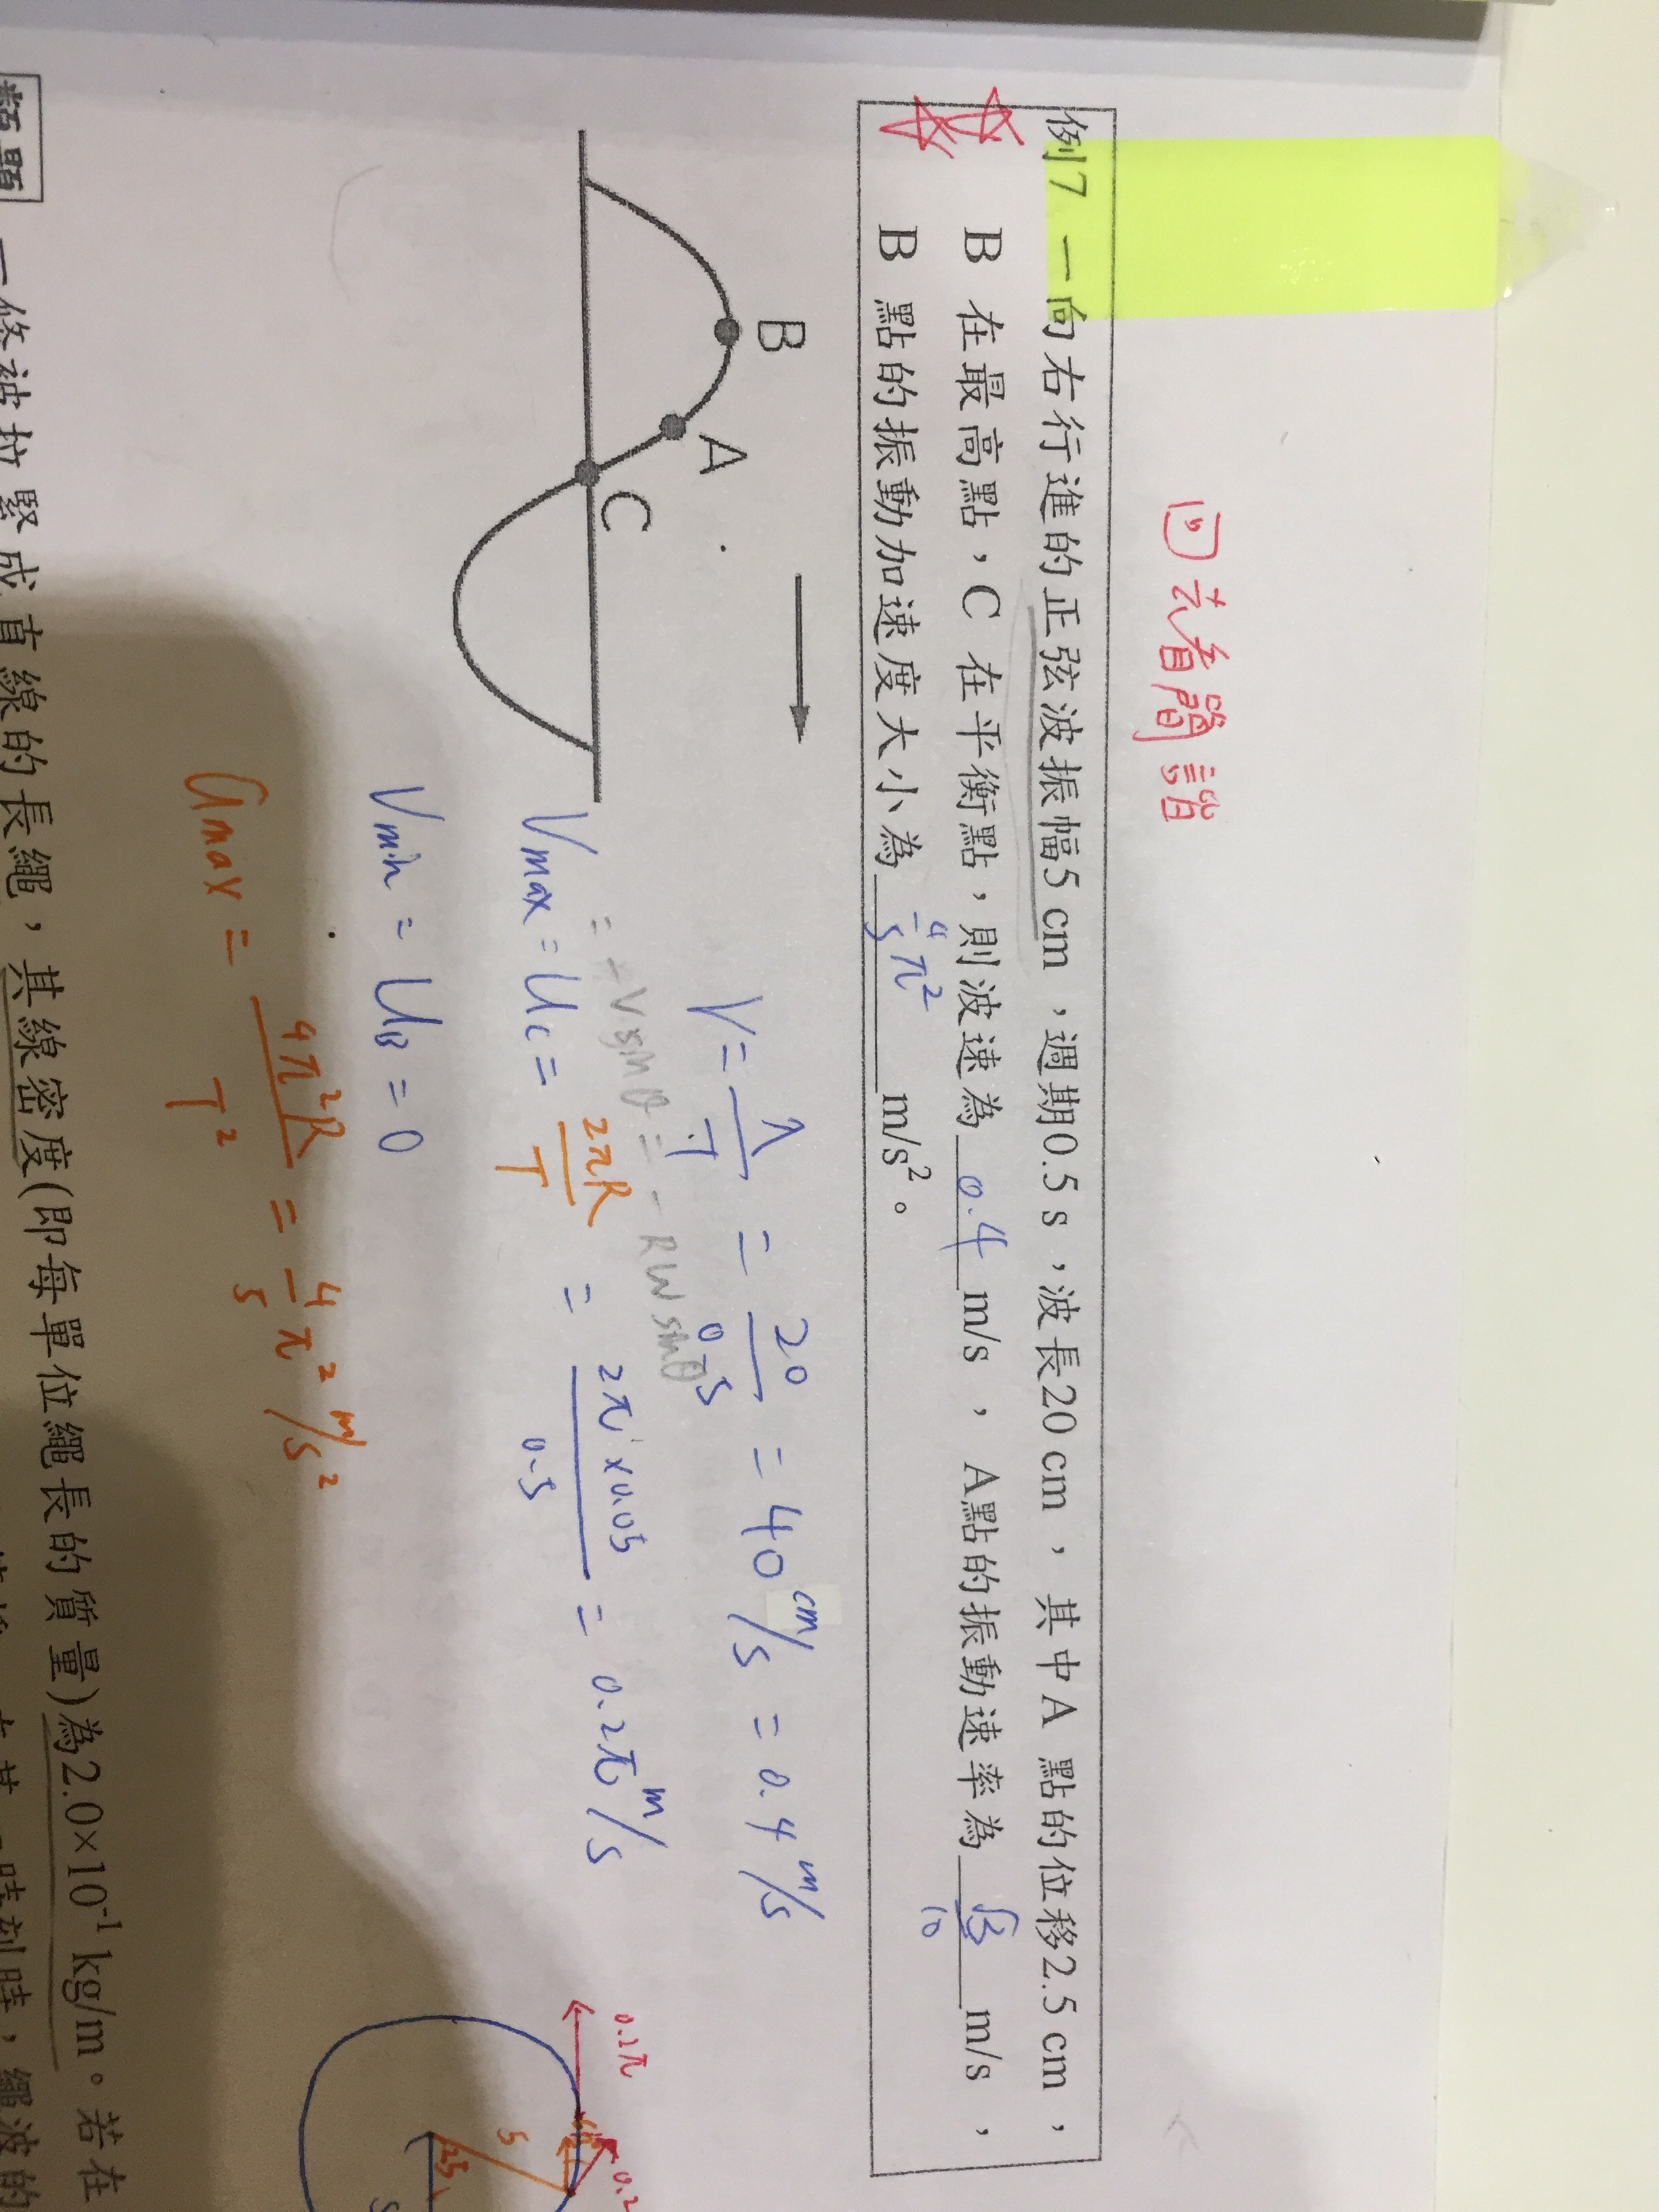 回去看簡諧
例7 一向右行進的正弦波振幅5 cm，週期0.5 s，波長20 cm，其中A 點的位移2.5 cm，
B 在最高點，C 在平衡點，則波速為 0.4 m/s，A點的振動速率為 √3/10 m/s，
B 點的振動加速度大小為 4/5 π² m/s²。
B
A
C
V = λ/T = 20/0.5 = 40 cm/s = 0.4 m/s
= -V sinθ = -RW sinθ
Vmax = Uc = 2πR/T = 2π×0.05/0.5 = 0.2π m/s
Vmin = UB = 0
amax = 4π²R/T² = 4/5 π² m/s²
0.2π
0.2
5
2.5
類題 一條被拉緊成直線的長繩，其線密度(即每單位繩長的質量)為2.0×10⁻¹ kg/m。若在